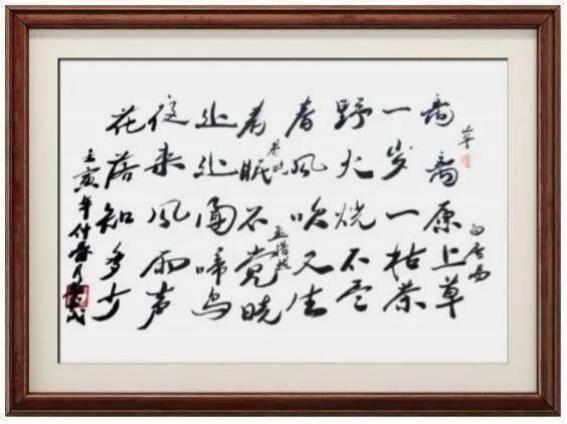 草
白居易
离离原上草
一岁一枯荣
野火烧不尽
春风吹又生
春晓
孟浩然
春眠不觉晓
处处闻啼鸟
夜来风雨声
花落知多少
壬寅年付